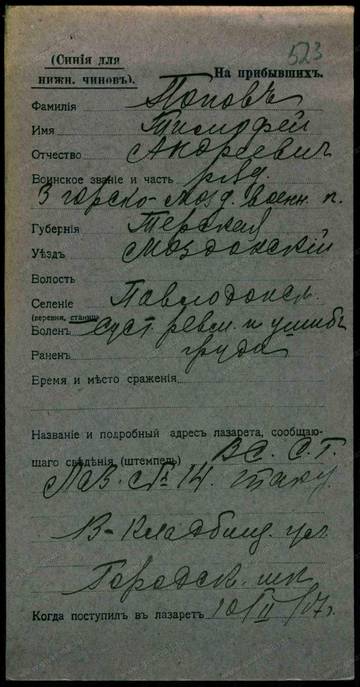 523
(Синія для
нижн. чиновъ).
На прибывшихъ.
Фамилія Поповъ
Имя Тимофей
Отчество Андреевич
Воинское званіе и часть ряд.
3 горско-мозд. военн. п.
Губернія Терская
Уѣздъ Моздокскій
Волость
Селеніе Павлодольск.
(деревня, станица)
Боленъ суст ревм. и ушиб
Раненъ груди
Время и мѣсто сраженія
Названіе и подробный адресъ лазарета, сообщаю-
щаго свѣдѣнія (штемпель) ВС. С. Г.
Лаз. с № 14.
Кладбищ. ул
Городск. шк
Когда поступилъ въ лазаретъ 10/II/17г.